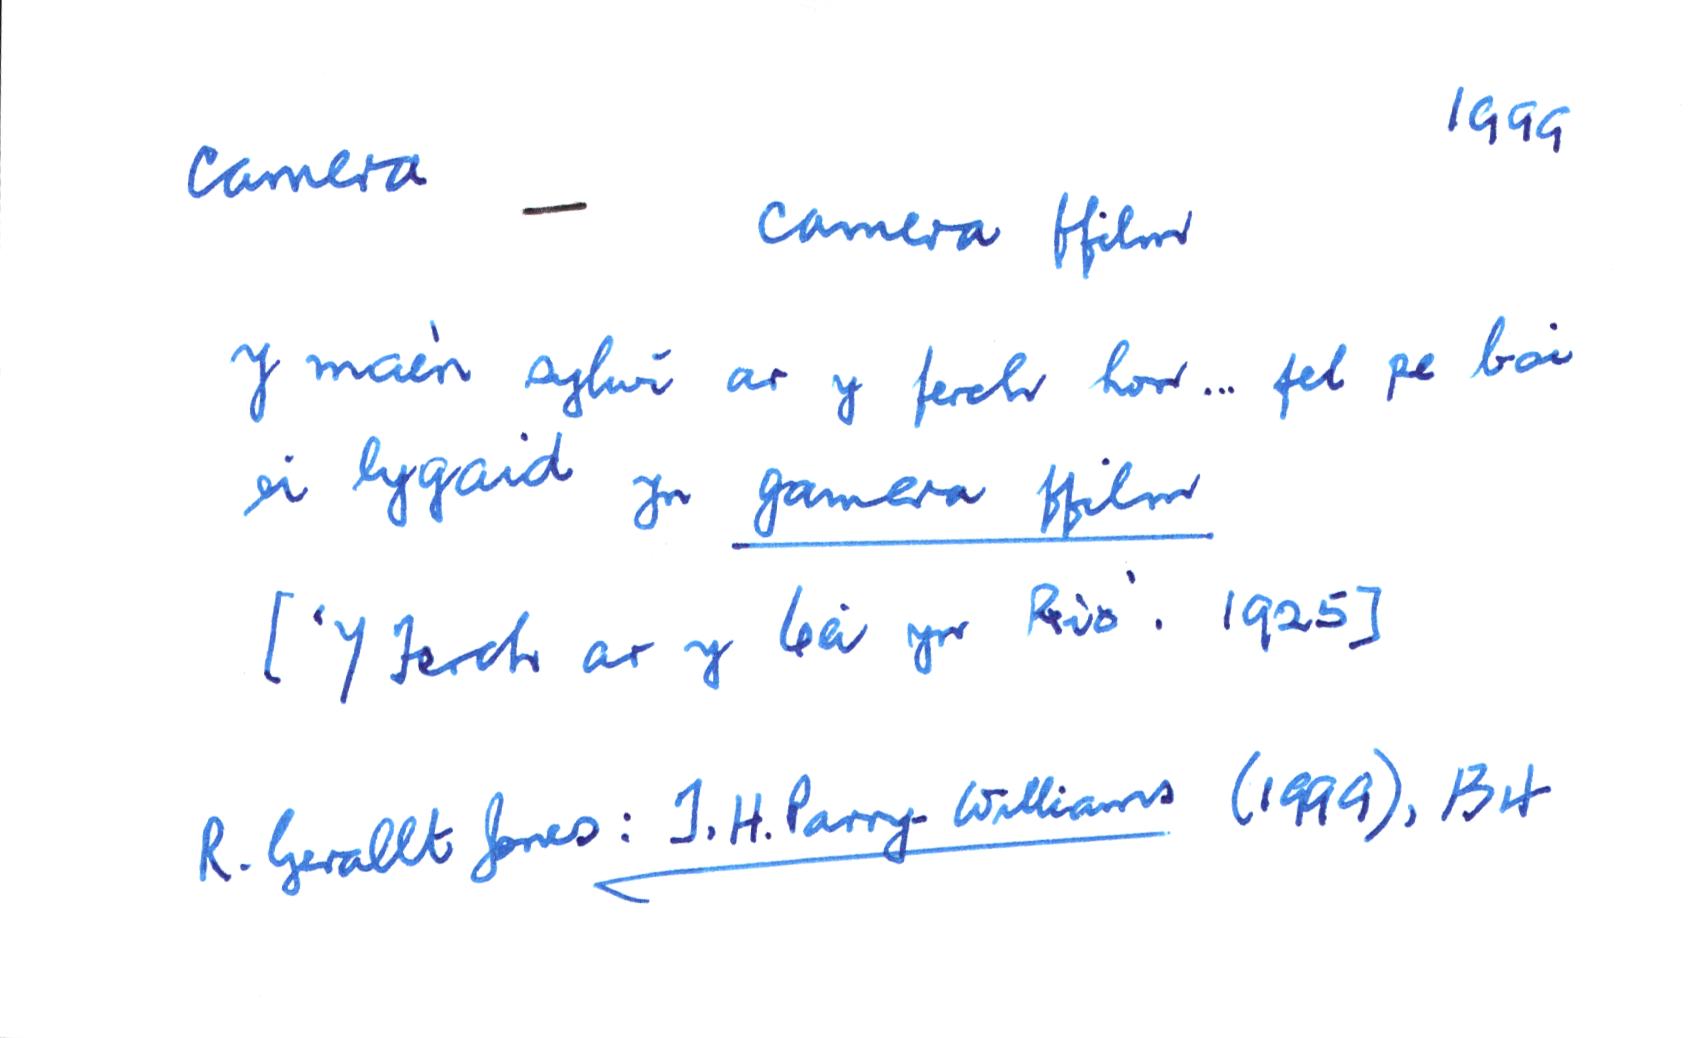 1999
camera — camera ffilm
y mae'n sylwi ar y ferch hon... fel pe bai
ei lygaid yn gamera ffilm
['Y Ferch ar y Cei yn Rio'. 1925]
R. Gerallt Jones: T.H. Parry-Williams (1999), 134